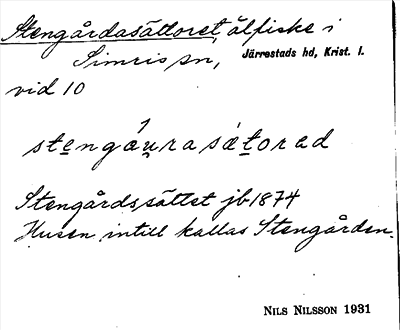 Stengårdasättoret, ålfiske i
Simris sn, Järrestads hd, Krist. l.
vid 10
stengáu̯rasǽtorad
Stengårdssättet jb 1874
Husen intill kallas Stengården.
NILS NILSSON 1931